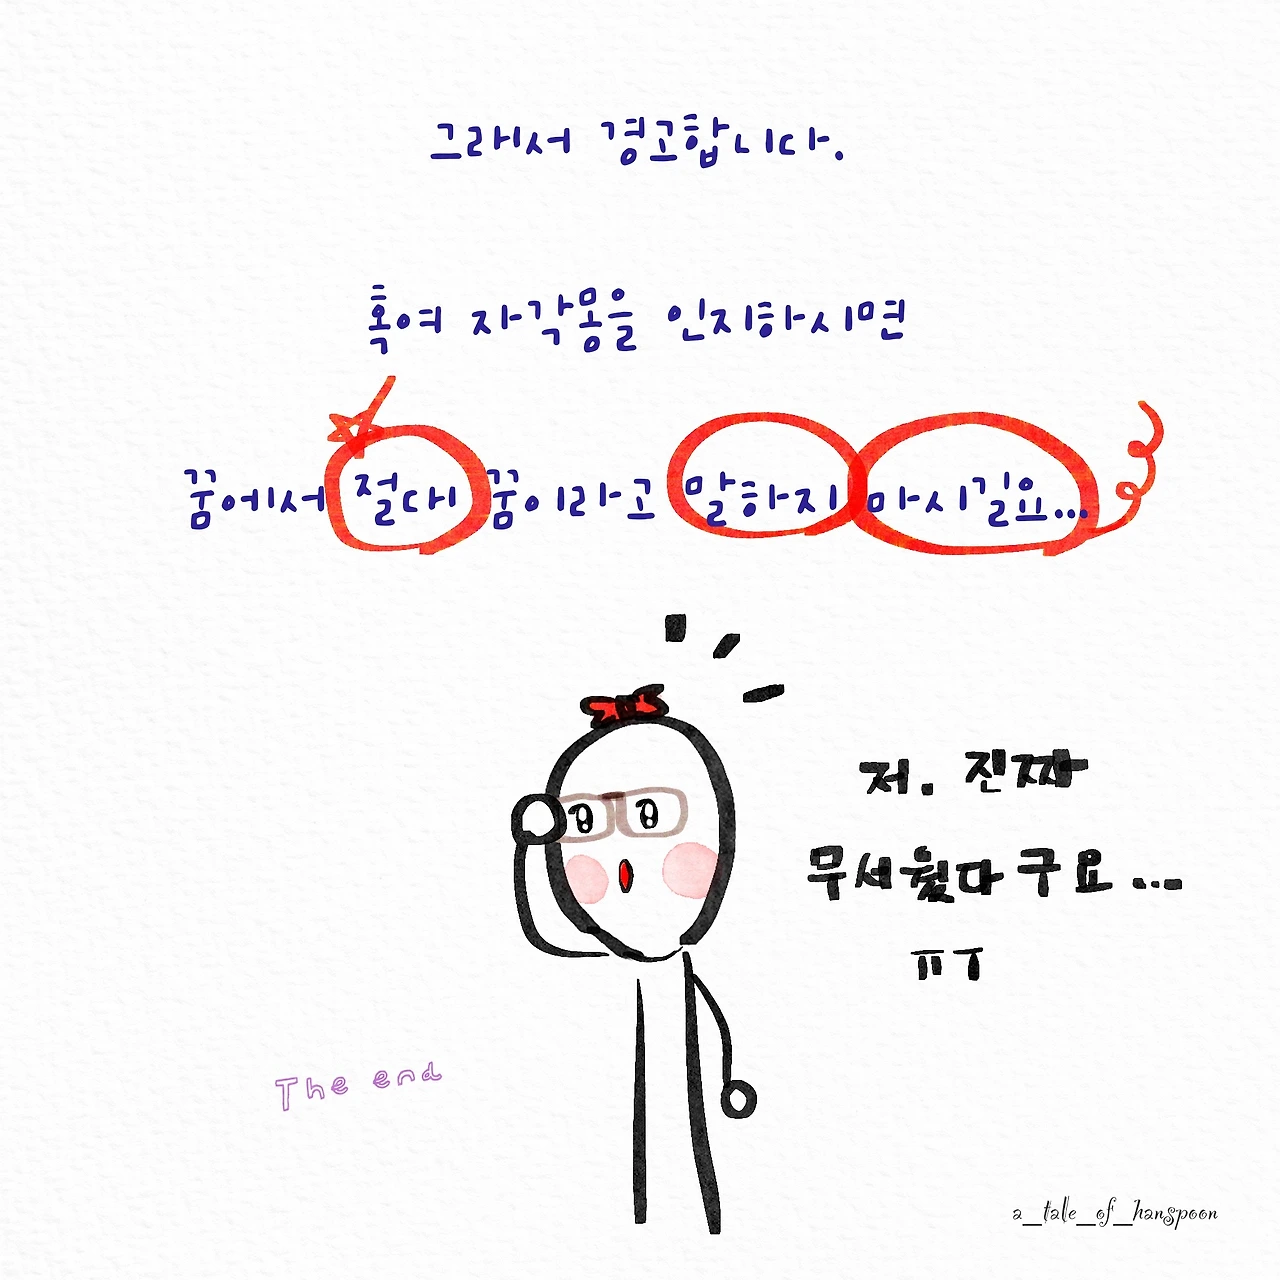 그래서 경고합니다.
혹여 자각몽을 인지하시면
꿈에서 절대 꿈이라고 말하지 마시길요...
저. 진짜
무서웠다구요...
ㅠㅜ
The end
a_tale_of_hanspoon